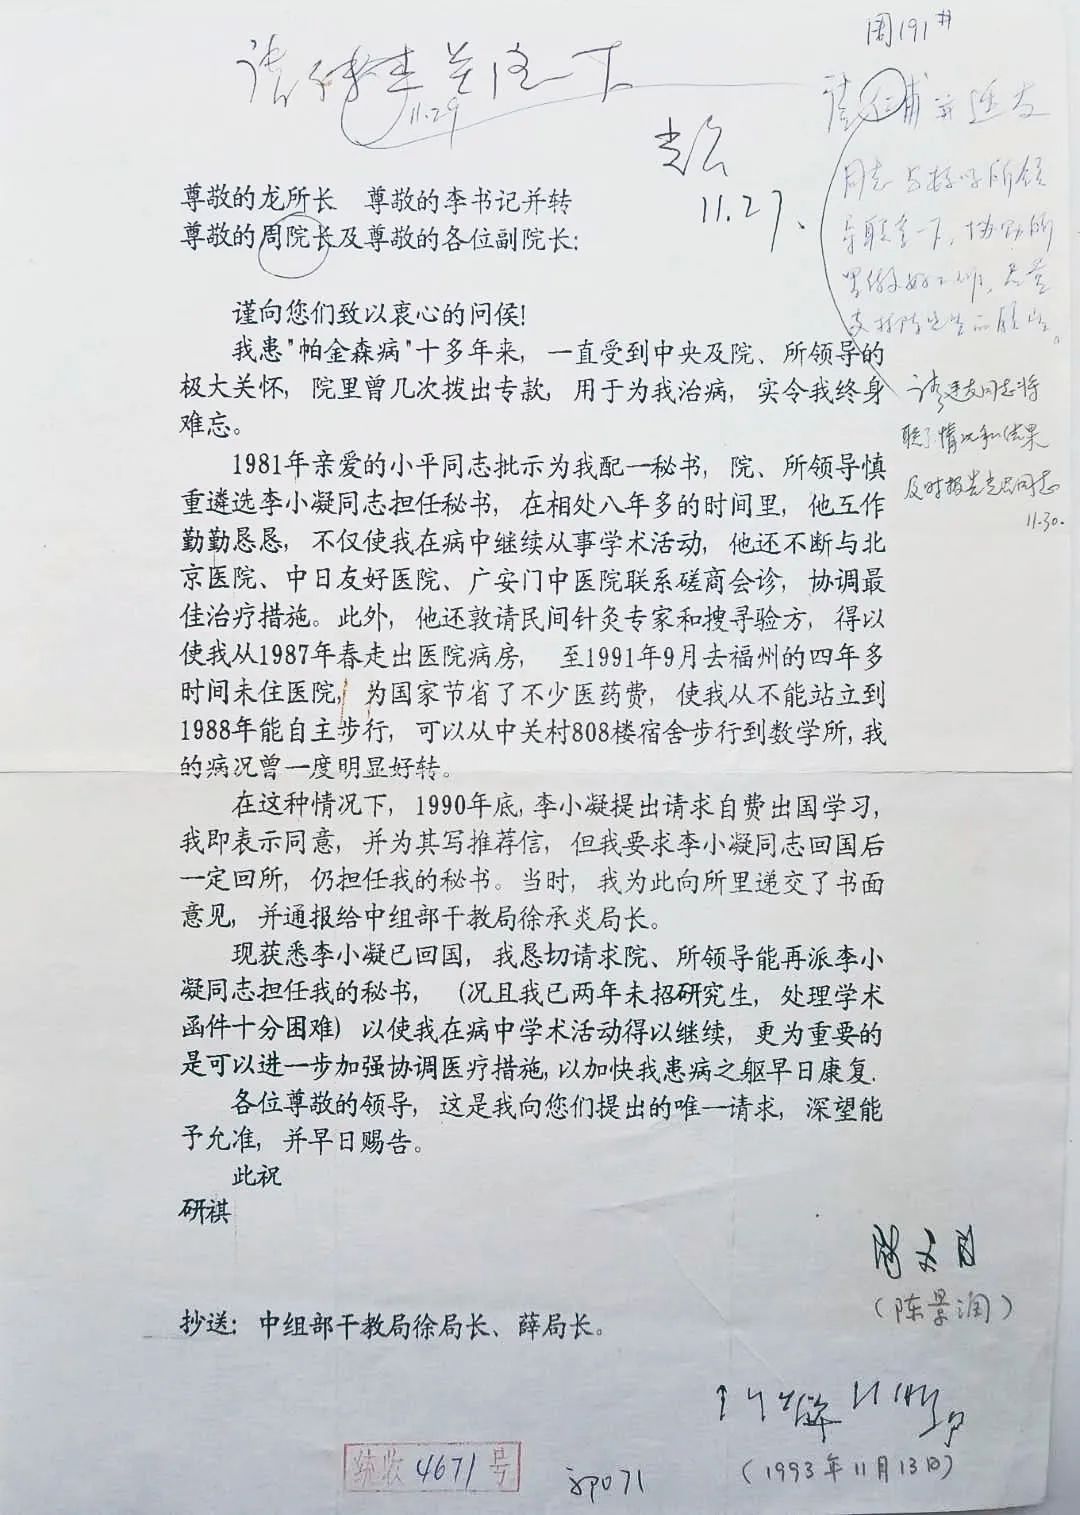 周191#
11.29
11.27.
尊敬的龙所长 尊敬的李书记并转
尊敬的周院长及尊敬的各位副院长:
谨向您们致以衷心的问侯!
我患"帕金森病"十多年来, 一直受到中央及院、所领导的
极大关怀, 院里曾几次拨出专款, 用于为我治病, 实令我终身
难忘。
1981年亲爱的小平同志批示为我配一秘书, 院、所领导慎
重遴选李小凝同志担任秘书, 在相处八年多的时间里, 他工作
勤勤恳恳, 不仅使我在病中继续从事学术活动, 他还不断与北
京医院、中日友好医院、广安门中医院联系磋商会诊, 协调最
佳治疗措施。此外, 他还敦请民间针灸专家和搜寻验方, 得以
使我从1987年春走出医院病房, 至1991年9月去福州的四年多
时间未住医院, 为国家节省了不少医药费, 使我从不能站立到
1988年能自主步行, 可以从中关村808楼宿舍步行到数学所, 我
的病况曾一度明显好转。
在这种情况下, 1990年底, 李小凝提出请求自费出国学习,
我即表示同意, 并为其写推荐信, 但我要求李小凝同志回国后
一定回所, 仍担任我的秘书。当时, 我为此向所里递交了书面
意见, 并通报给中组部干教局徐承炎局长。
现获悉李小凝已回国, 我恳切请求院、所领导能再派李小
凝同志担任我的秘书, (况且我已两年未招研究生, 处理学术
函件十分困难) 以使我在病中学术活动得以继续, 更为重要的
是可以进一步加强协调医疗措施, 以加快我患病之躯早日康复.
各位尊敬的领导, 这是我向您们提出的唯一请求, 深望能
予允准, 并早日赐告。
此祝
研祺
同志与数学所领
导联系一下, 协助所
里做好工作, 尽量
请廷友同志将
联系情况和结果
及时报告光召同志
11.30.
(陈景润)
抄送: 中组部干教局徐局长、薛局长。
(1993年11月13日)
统收4671号